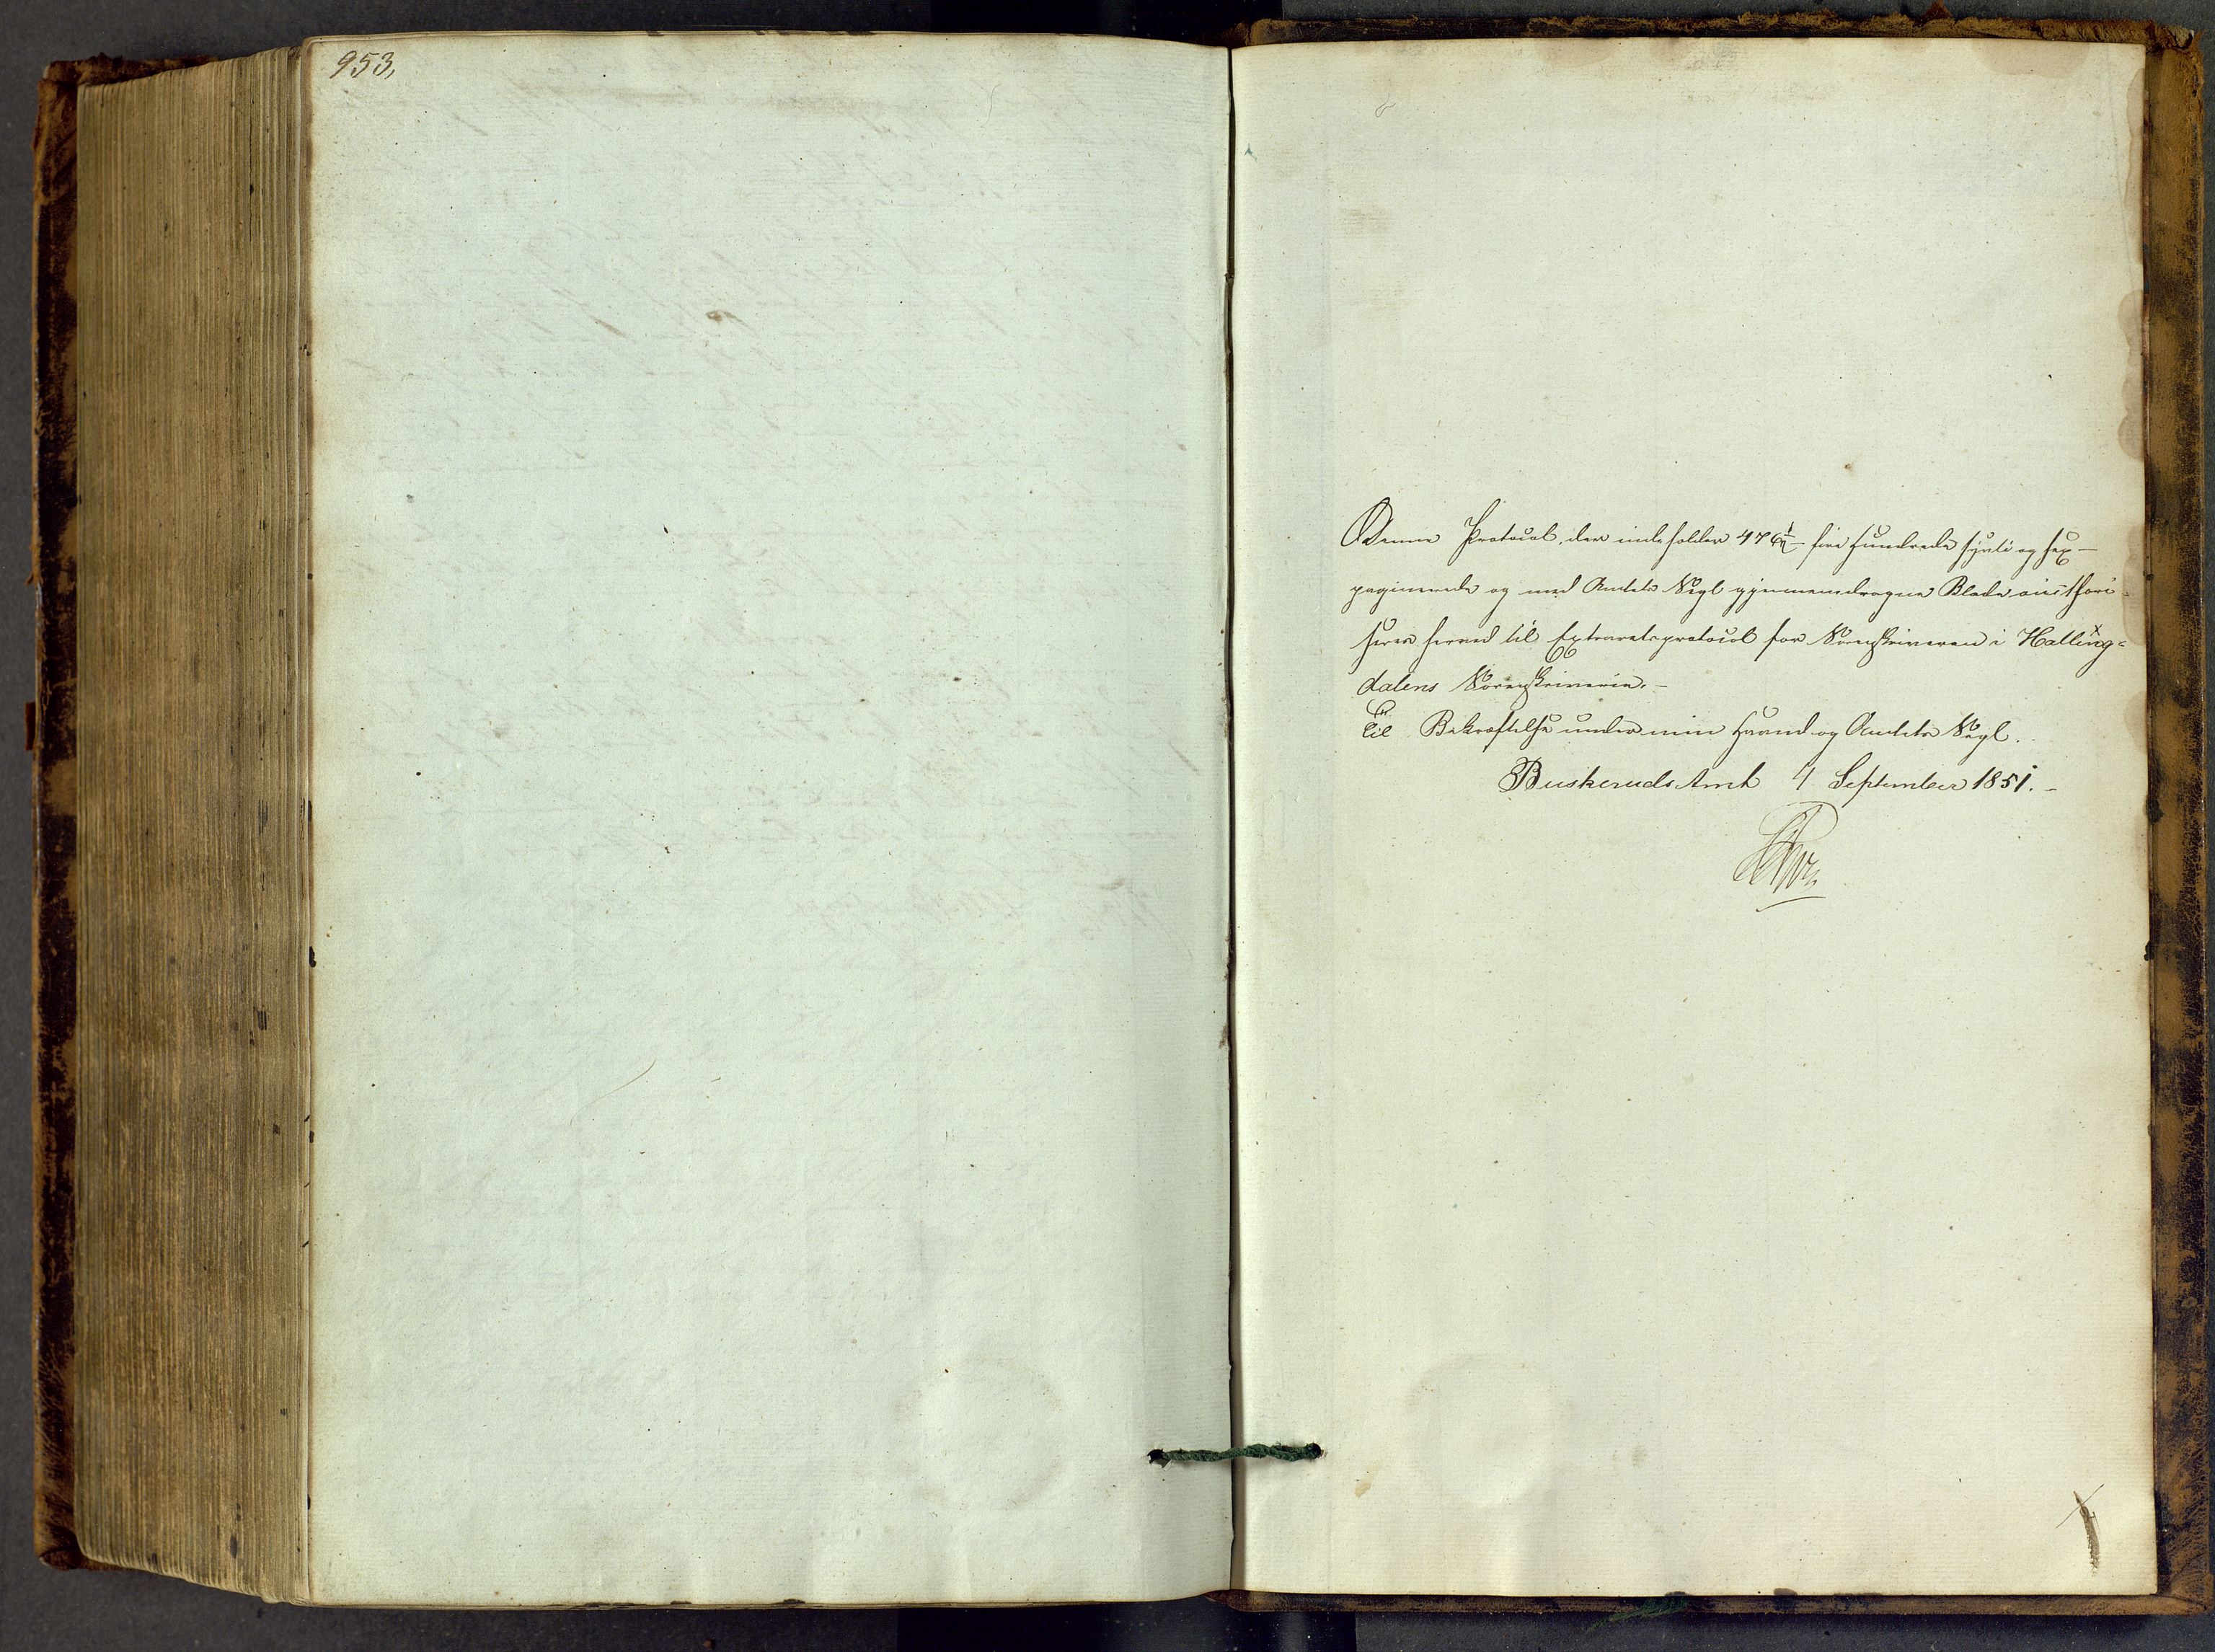 953,
Denne Protocol, der indeholder 476½ fire hundrede sytti og sex –
paginerede og med Amtets Segl gjennemdragne Blade authori-
seres herved til Extraretsprotocol for Sorenskriveren i Halling=
dalens Sorenskriverie. –
Til Bekræftelse under min Haand og Amtets Segl.
Buskeruds Amt 4 September 1851. –